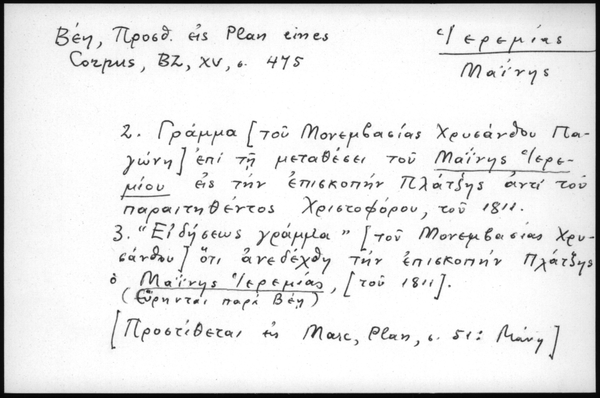 Βέη, Προσθ. εἰς Plan eines
Corpus, BZ, XV, σ. 475
Ἱερεμίας
Μαΐνης
2. Γράμμα [τοῦ Μονεμβασίας Χρυσάνθου Πα-
γώνη] ἐπὶ τῇ μεταθέσει τοῦ Μαΐνης Ἱερε-
μίου εἰς τὴν ἐπισκοπὴν Πλάτζης ἀντὶ τοῦ
παραιτηθέντος Χριστοφόρου, τοῦ 1811.
3. "Εἰδήσεως γράμμα" [τοῦ Μονεμβασίας Χρυ-
σάνθου] ὅτι ἀνεδέχθη τὴν ἐπισκοπὴν Πλάτζης
ὁ Μαΐνης Ἱερεμίας, [τοῦ 1811].
(Εὕρηνται παρὰ Βέῃ)
[Προστίθεται εἰς Marc, Plan, σ. 51: Μάνη]